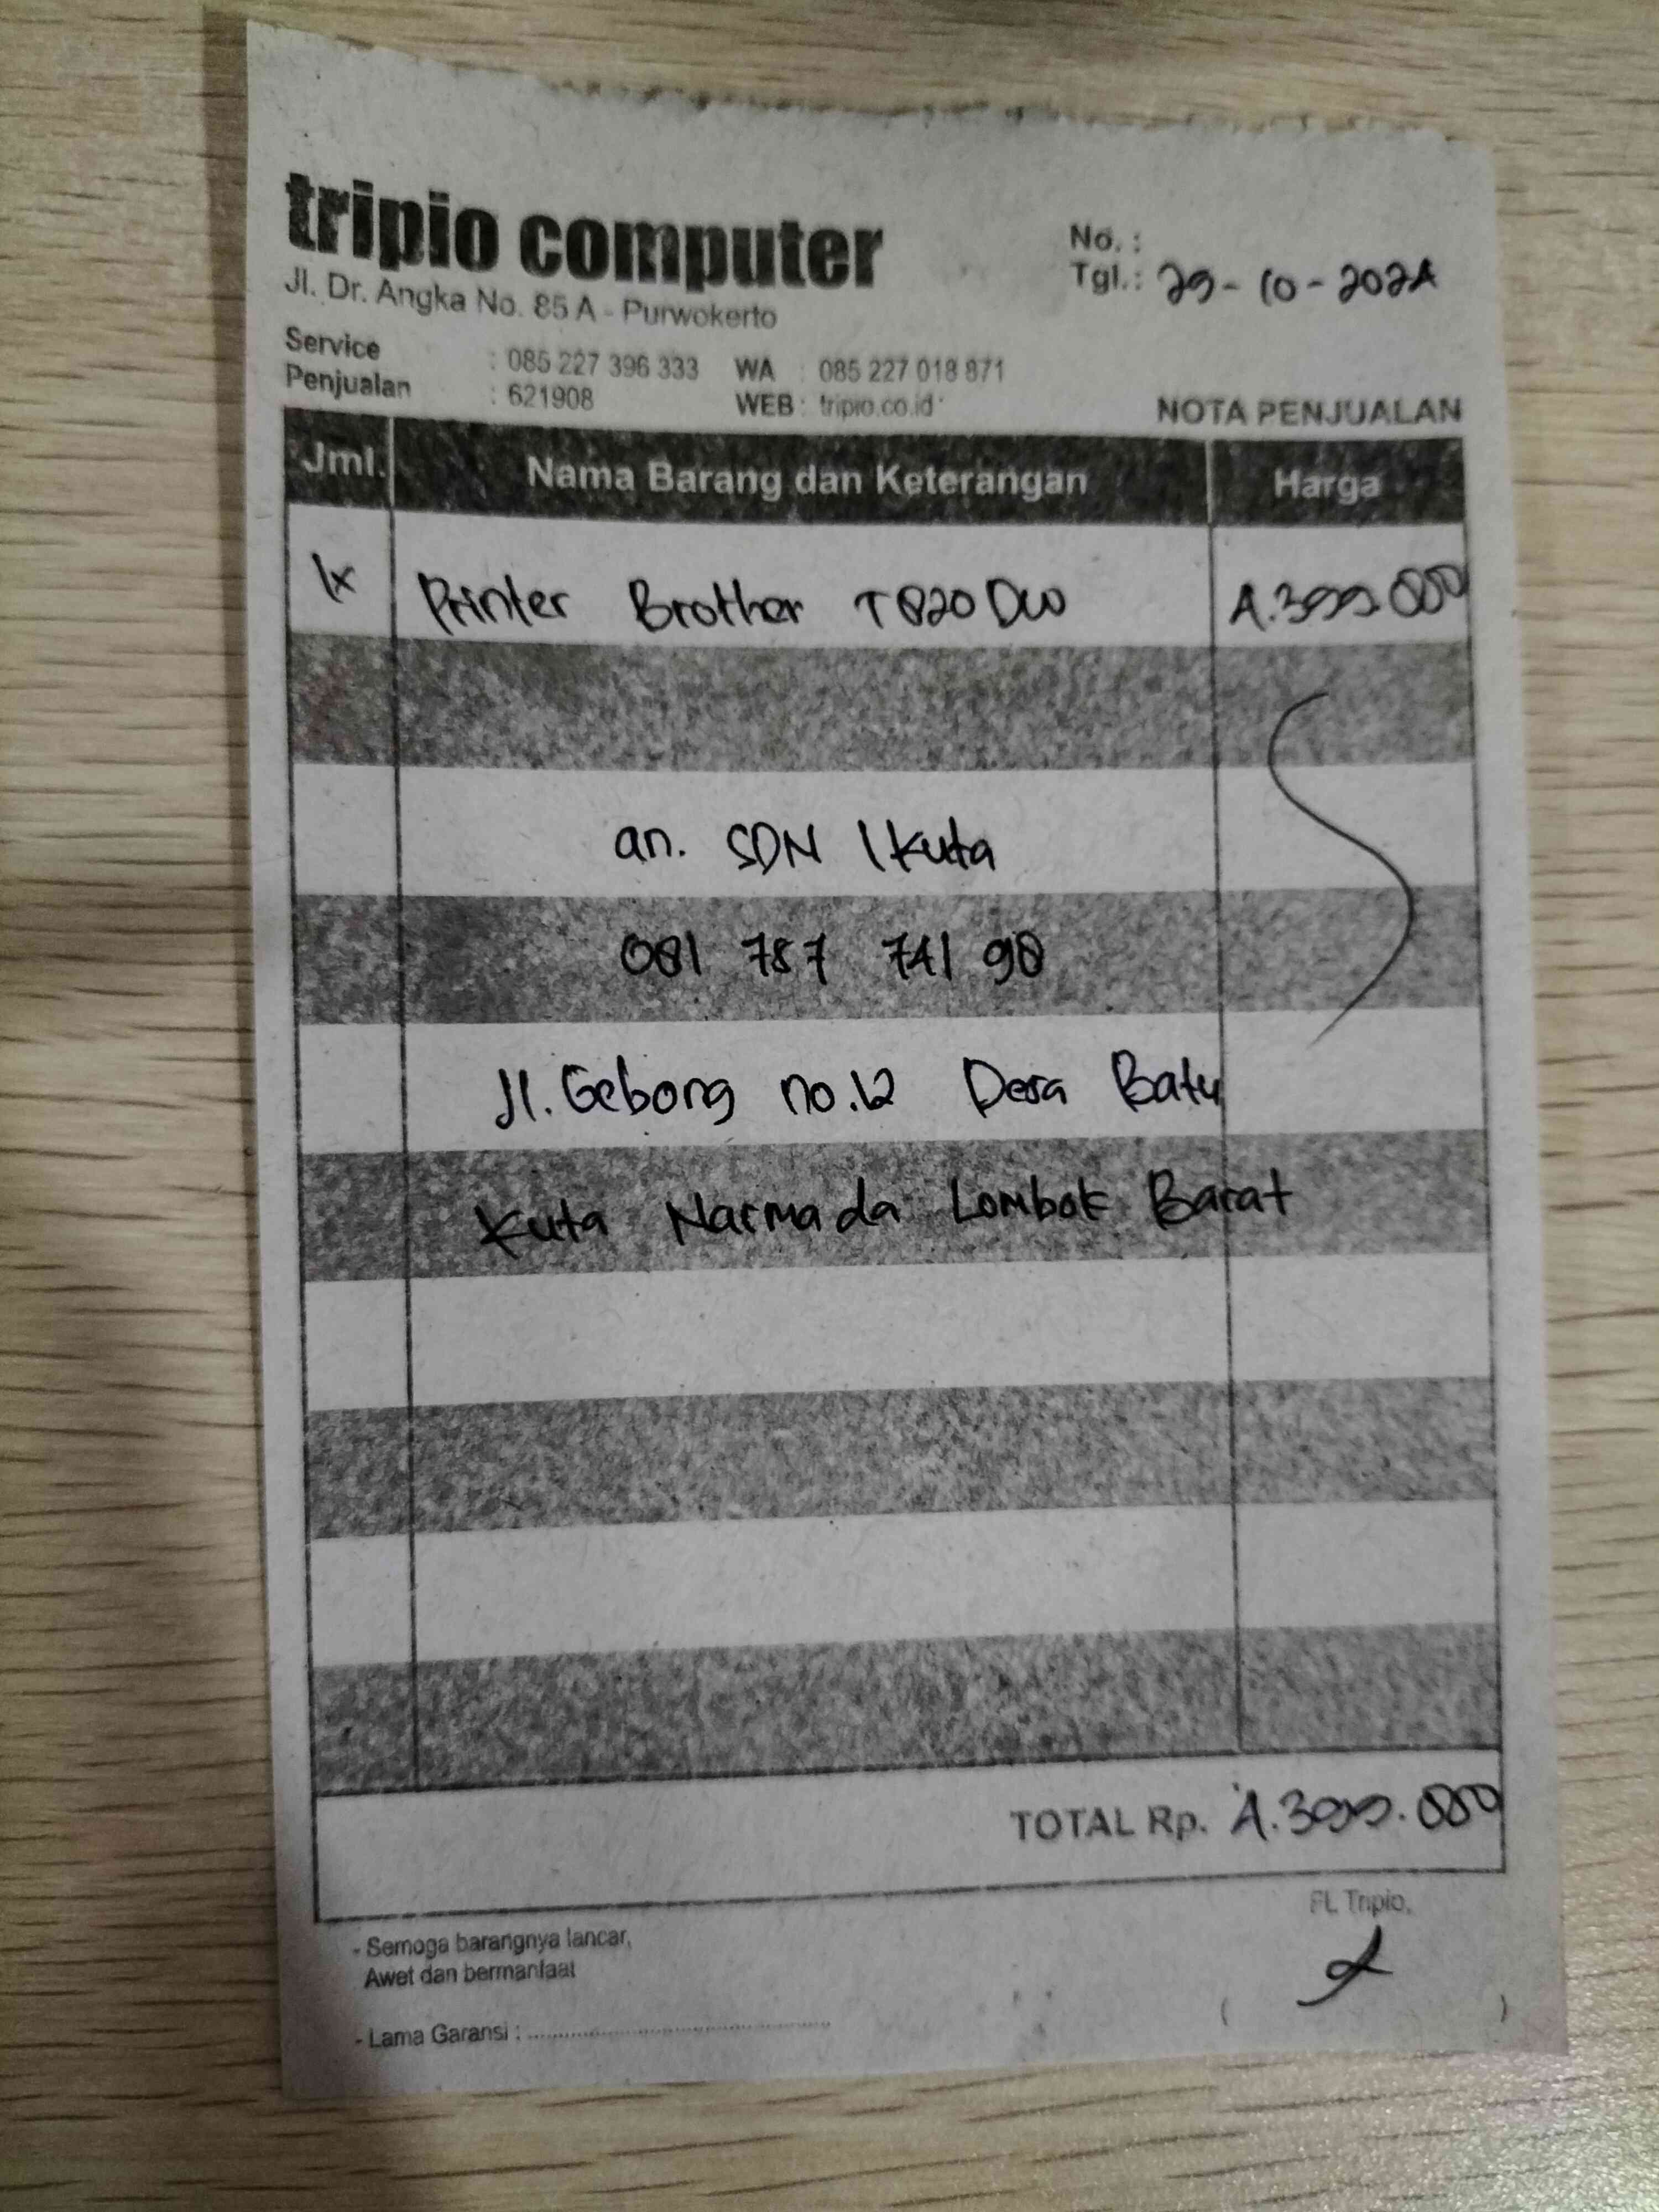 tripio computer
Jl. Dr. Angka No. 85 A - Purwokerto
No. :
Tgl.: 29-10-2024
Service : 085 227 396 333 WA : 085 227 018 871
Penjualan : 621908 WEB : tripio.co.id
NOTA PENJUALAN
Jml. Nama Barang dan Keterangan Harga
1x Printer Brother T820DW 4.399.000
an. SDN 1 Kuta
081 787 741 98
Jl. Gebong no.12 Desa Batu
Kuta Narmada Lombok Barat
TOTAL Rp. 4.399.000
- Semoga barangnya lancar,
Awet dan bermanfaat
- Lama Garansi :
FL Tripio,
( )